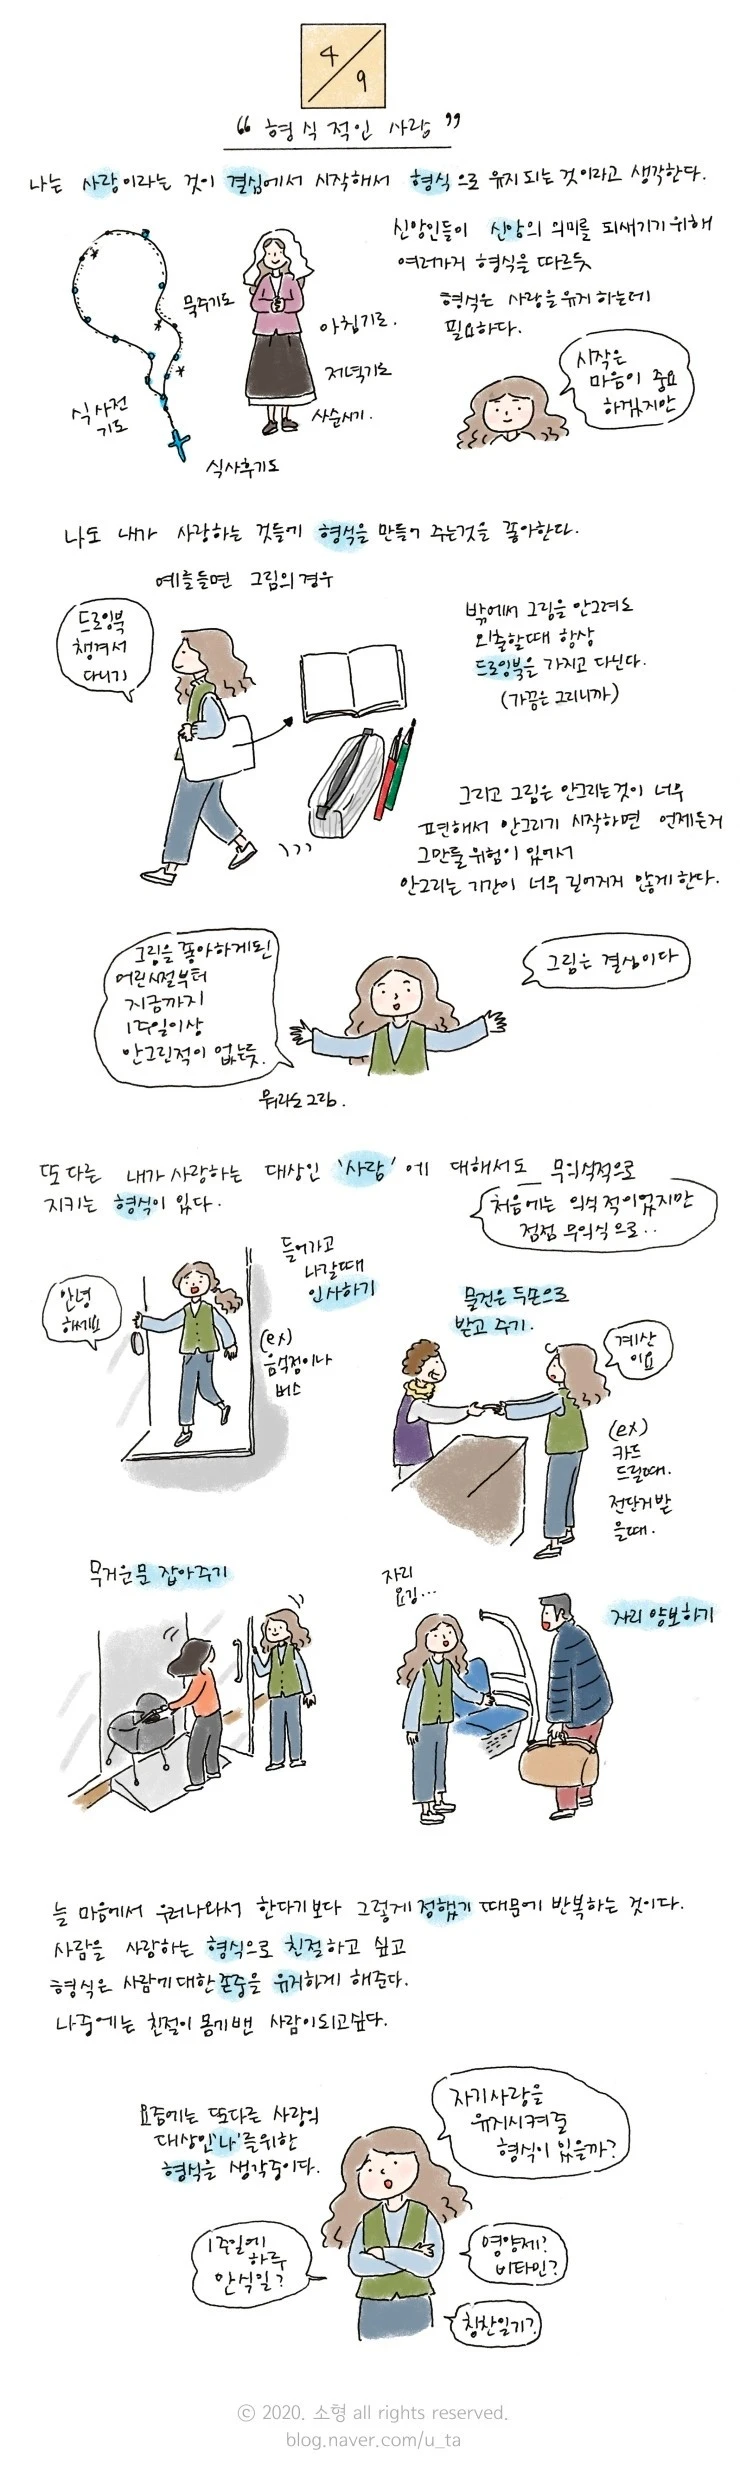 4
9
“ 형식적인 사랑 ”
나는 사랑이라는 것이 결심에서 시작해서 형식으로 유지되는 것이라고 생각한다.
신앙인들이 신앙의 의미를 되새기기 위해
여러가지 형식을 따르듯
형식은 사랑을 유지하는데
필요하다.
묵주기도
아침기도.
저녁기도
사순시기.
식사전
기도
식사후기도
시작은
마음이 중요
하겠지만
나도 내가 사랑하는 것들에 형식을 만들어 주는것을 좋아한다.
예를들면 그림의 경우
드로잉북
챙겨서
다니기
밖에서 그림을 안그려도
외출할때 항상
드로잉북을 가지고 다닌다.
(가끔은 그리니까)
그리고 그림은 안그리는것이 너무
편해서 안그리기 시작하면 언제든지
그만둘 위험이 있어서
안그리는 기간이 너무 길어지지 않게 한다.
그림을 좋아하게된
어린시절부터
지금까지
1주일이상
안그린적이 없는듯.
그림은 결심이다
뭐라도 그림.
또 다른 내가 사랑하는 대상인 '사람' 에 대해서도 무의식적으로
지키는 형식이 있다.
처음에는 의식적이었지만
점점 무의식으로..
안녕
하세요
들어가고
나갈때
인사하기
(ex)
음식점이나
버스
물건은 두손으로
받고 주기.
계산
이요
(ex)
카드
드릴때.
전단지받
을때.
무거운 문 잡아주기
자리
요깅...
자리 양보하기
늘 마음에서 우러나와서 한다기보다 그렇게 정했기 때문에 반복하는 것이다.
사람을 사랑하는 형식으로 친절하고 싶고
형식은 사람에 대한 존중을 유지하게 해준다.
나중에는 친절이 몸에 밴 사람이되고싶다.
요즘에는 또다른 사랑의
대상인 '나'를 위한
형식을 생각중이다.
자기사랑을
유지시켜줄
형식이 있을까?
1주일에
하루
안식일?
영양제?
비타민?
칭찬일기?
© 2020. 소형 all rights reserved.
blog.naver.com/u_ta